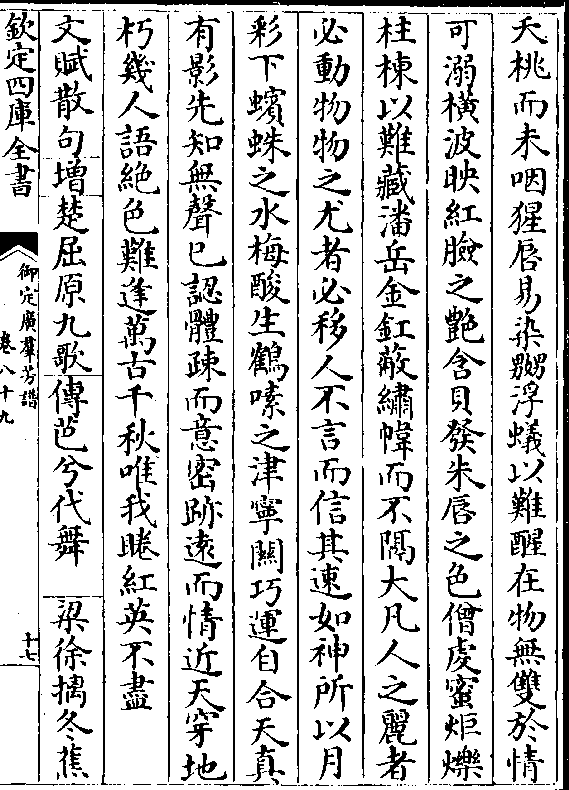 夭桃而未咽猩唇易染嬲浮蟻以難醒在物無雙於情
可溺橫波映紅臉之艶含貝發朱唇之色僧虔蜜炬爍
柱棟以難藏潘岳金釭蔽繡幃而不隔大凡人之麗者
必動物物之尤者必移人不言而信其速如神所以月
彩下蠙蛛之水梅酸生鶴嗉之津寧關巧運自合天真
有影先知無聲已認體疎而意密跡遠而情近天穿地
朽幾人語絶色難逢萬古千秋唯我睠紅英不盡
文賦散句增楚屈原九歌傳芭兮代舞 梁徐摛冬蕉
欽定四庫全書
御定廣羣芳譜
卷八十九
十七